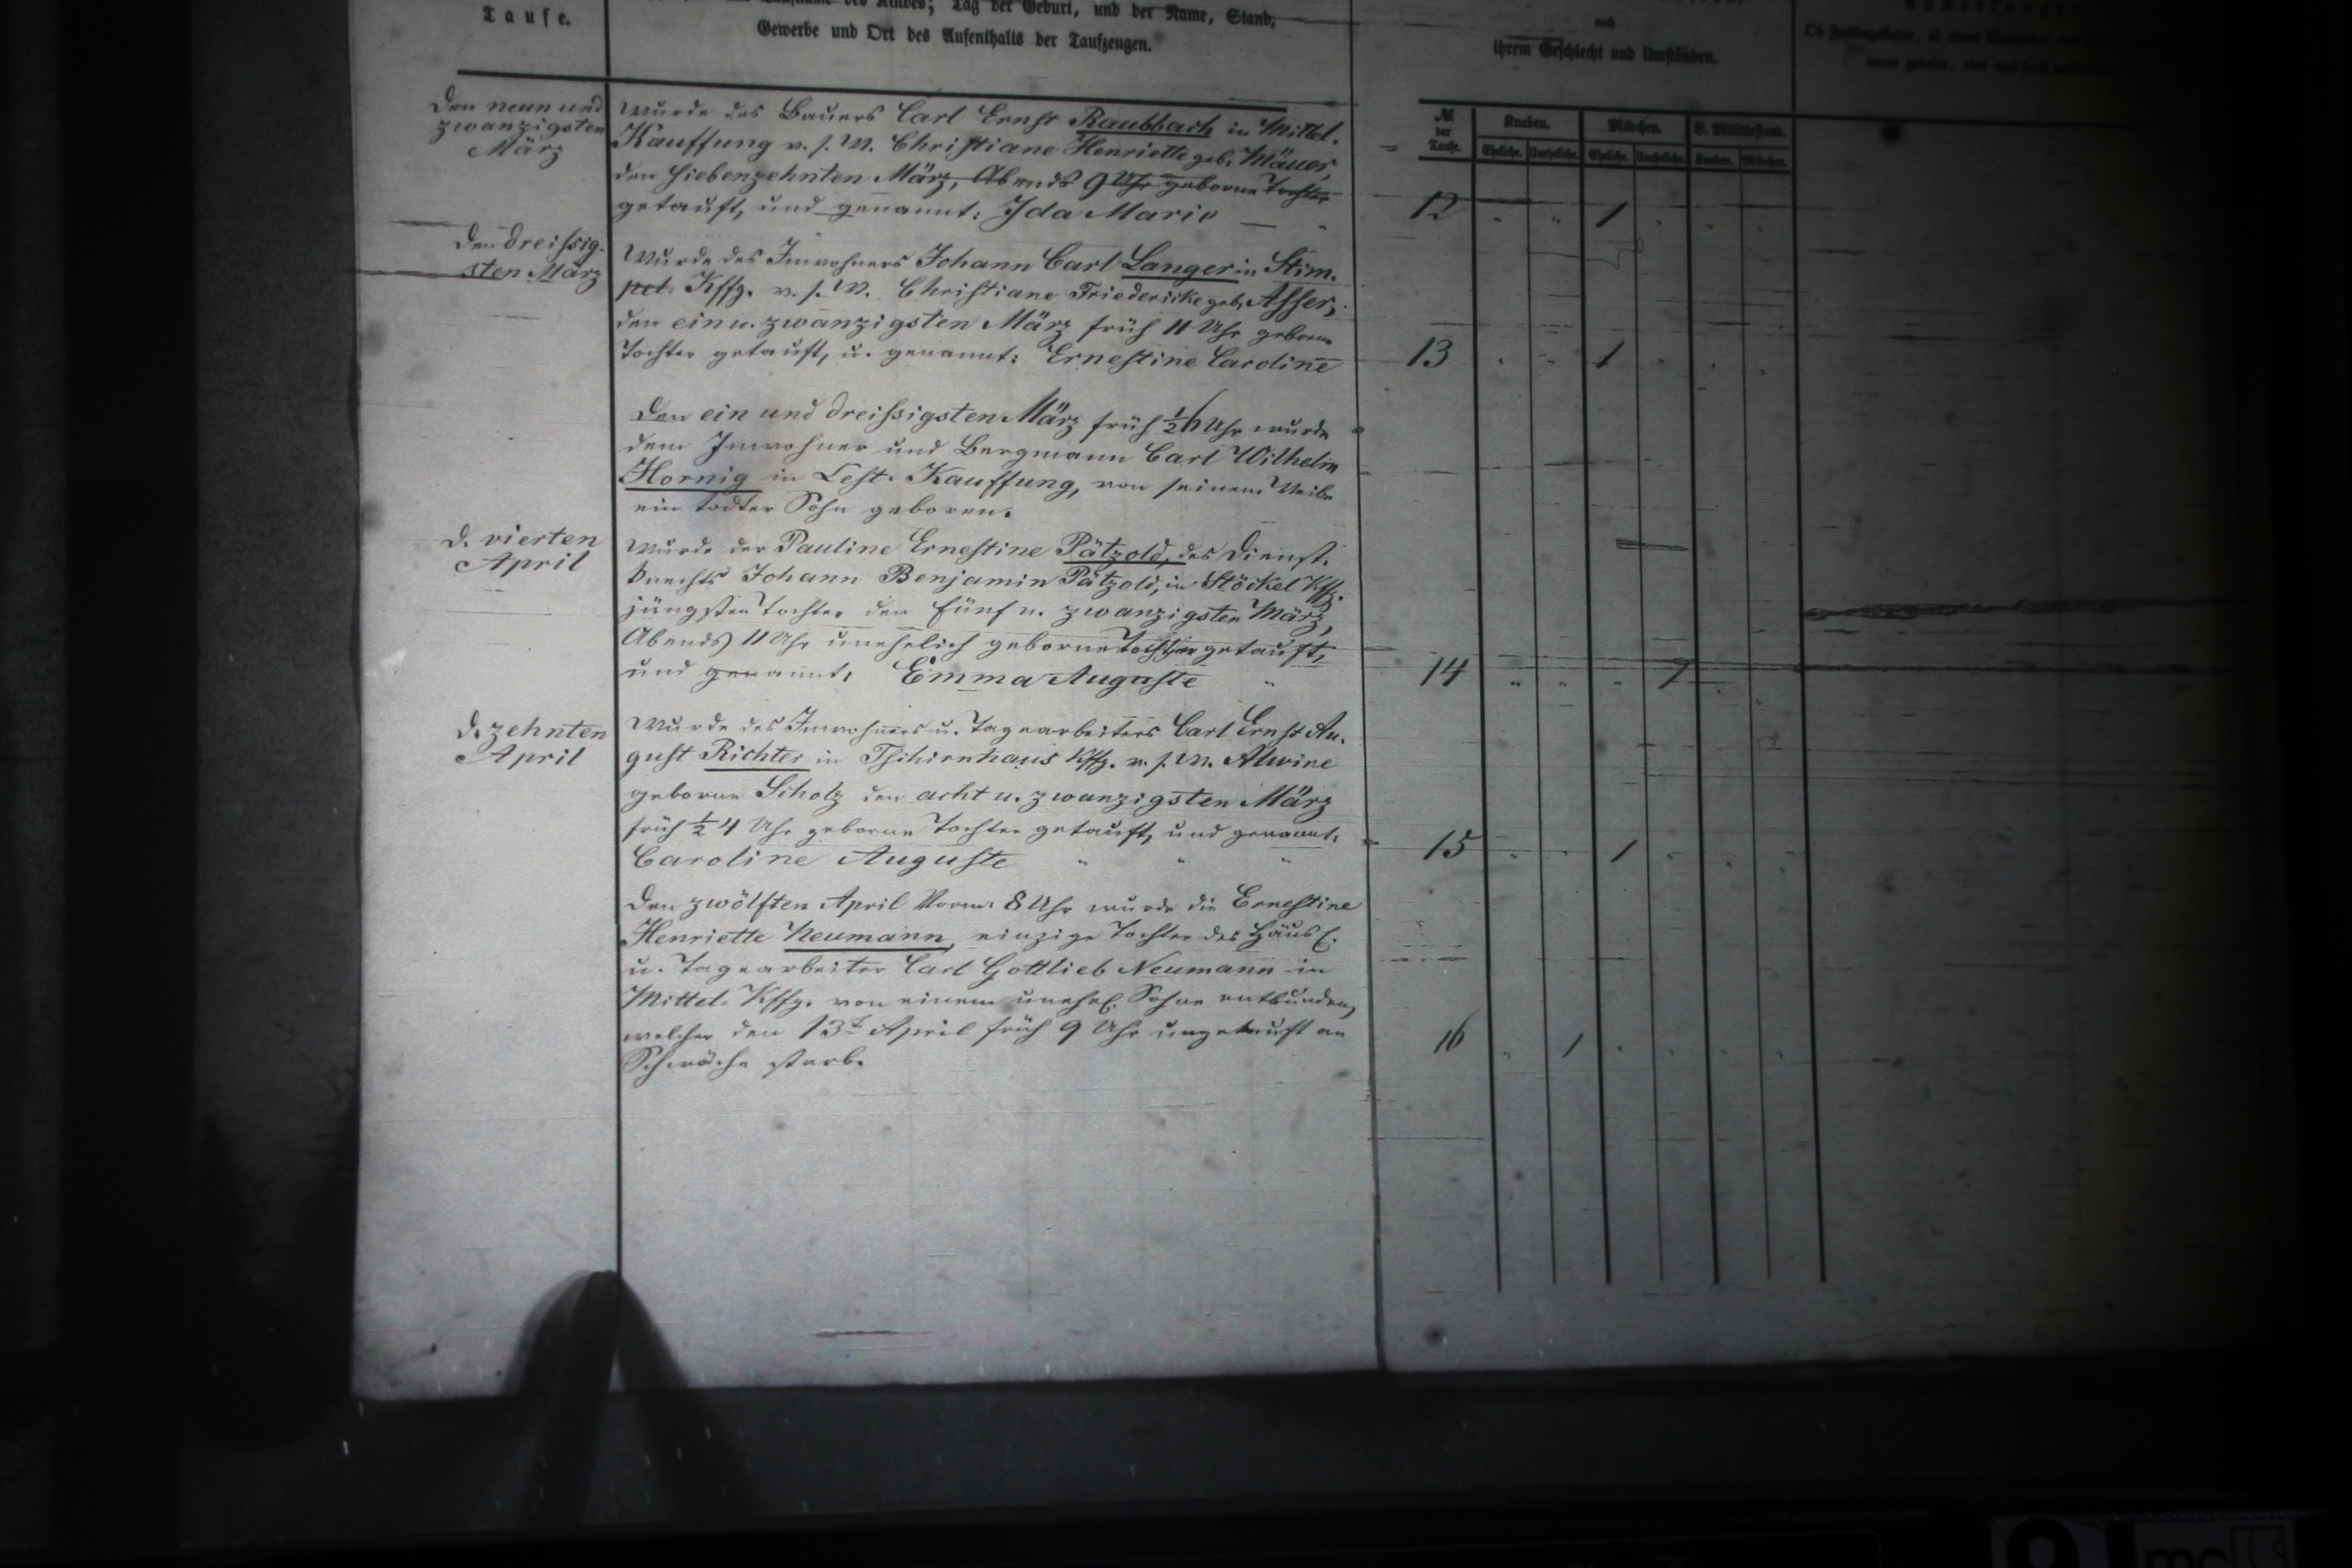 Taufe.
des Kindes; Tag der Geburt, und der Name, Stand,
Gewerbe und Ort des Aufenthalts der Taufzeugen.
nach
ihrem Geschlecht und Umständen.
№ der Taufe.
Knaben. Mädchen. B. Militärstand.
Eheliche. Uneheliche. Eheliche. Uneheliche. Knaben. Mädchen.
Den neun und
zwanzigsten
März
Wurde des Bauers Carl Ernst Raubbach in Mittel-
Kauffung v. s. W. Christiane Henriette geb. Mäuer,
den siebenzehnten März, Abends 9 Uhr geborne Tochter
getauft, und genannt: Ida Marie
12 " " 1 " " "
Den dreißig-
sten März
Wurde des Inwohners Johann Carl Langer in Stim-
pel- Kffg. v. s. W. Christiane Friedericke geb. Asser,
den ein u. zwanzigsten März früh 11 Uhr geborne
Tochter getauft, u. genannt: Ernestine Caroline
13 " " 1 " " "
Den ein und dreißigsten März früh ½ 6 Uhr wurde
dem Inwohner und Bergmann Carl Wilhelm
Hornig in Lest- Kauffung, von seinem Weibe
ein todter Sohn geboren.
d. vierten
April
Wurde der Pauline Ernestine Pätzold, des Dienst-
knechts Johann Benjamin Pätzold, in Stöckel Kffg.
jüngsten Tochter den fünf u. zwanzigsten März,
Abends 11 Uhr unehelich geborne Tochter getauft,
und genannt: Emma Auguste "
14 " " " 1 "
d. zehnten
April
Wurde des Inwohners u. Tagearbeiters Carl Ernst Au-
gust Richter in Tschirnhaus Kffg. v. s. W. Alwine
geborne Scholz den acht u. zwanzigsten März
früh ½ 4 Uhr geborne Tochter getauft, und genannt:
Caroline Auguste " " "
15 " " 1 " " "
Den zwölften April Vorm. 8 Uhr wurde die Ernestine
Henriette Neumann, einzige Tochter des Häusl.
u. Tagearbeiter Carl Gottlieb Neumann in
Mittel- Kffg. von einem unehel. Sohne entbunden,
welcher den 13t April früh 9 Uhr ungetauft an
Schwäche starb.
16 " 1 " " " "